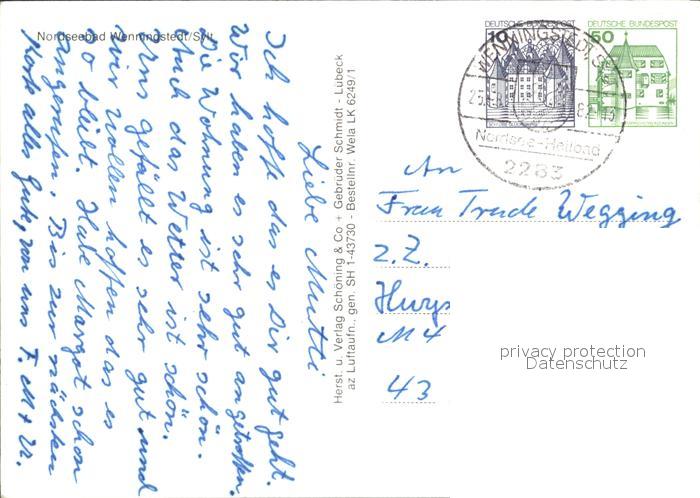 Nordseebad Wenningstedt/Sylt
Liebe Mutti
Ich hoffe das es Dir gut geht.
Wir haben es sehr gut angetroffen.
Die Wohnung ist sehr schön.
Auch das Wetter ist schön.
Uns gefällt es sehr gut und
wir wollen hoffen das es
so bleibt. Habe Margot schon
angerufen. Bis zur nächsten
Karte alles Gute, von uns F. M + U.
Herst. u. Verlag Schöning & Co + Gebrüder Schmidt - Lübeck
az Luftaufn., gen. SH 1-43730 - Bestellnr. Wela LK 6249/1
DEUTSCHE BUNDESPOST
10
DEUTSCHE BUNDESPOST
50
WENNINGSTEDT
Nordsee-Heilbad
2283
An
Frau Trude Wegging
z. Z.
M 4
43
privacy protection
Datenschutz